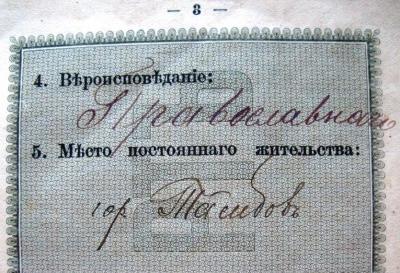 — 3 —
4. Вѣроисповѣданіе:
Православнаго
5. Мѣсто постояннаго жительства:
гор. Тамбовъ